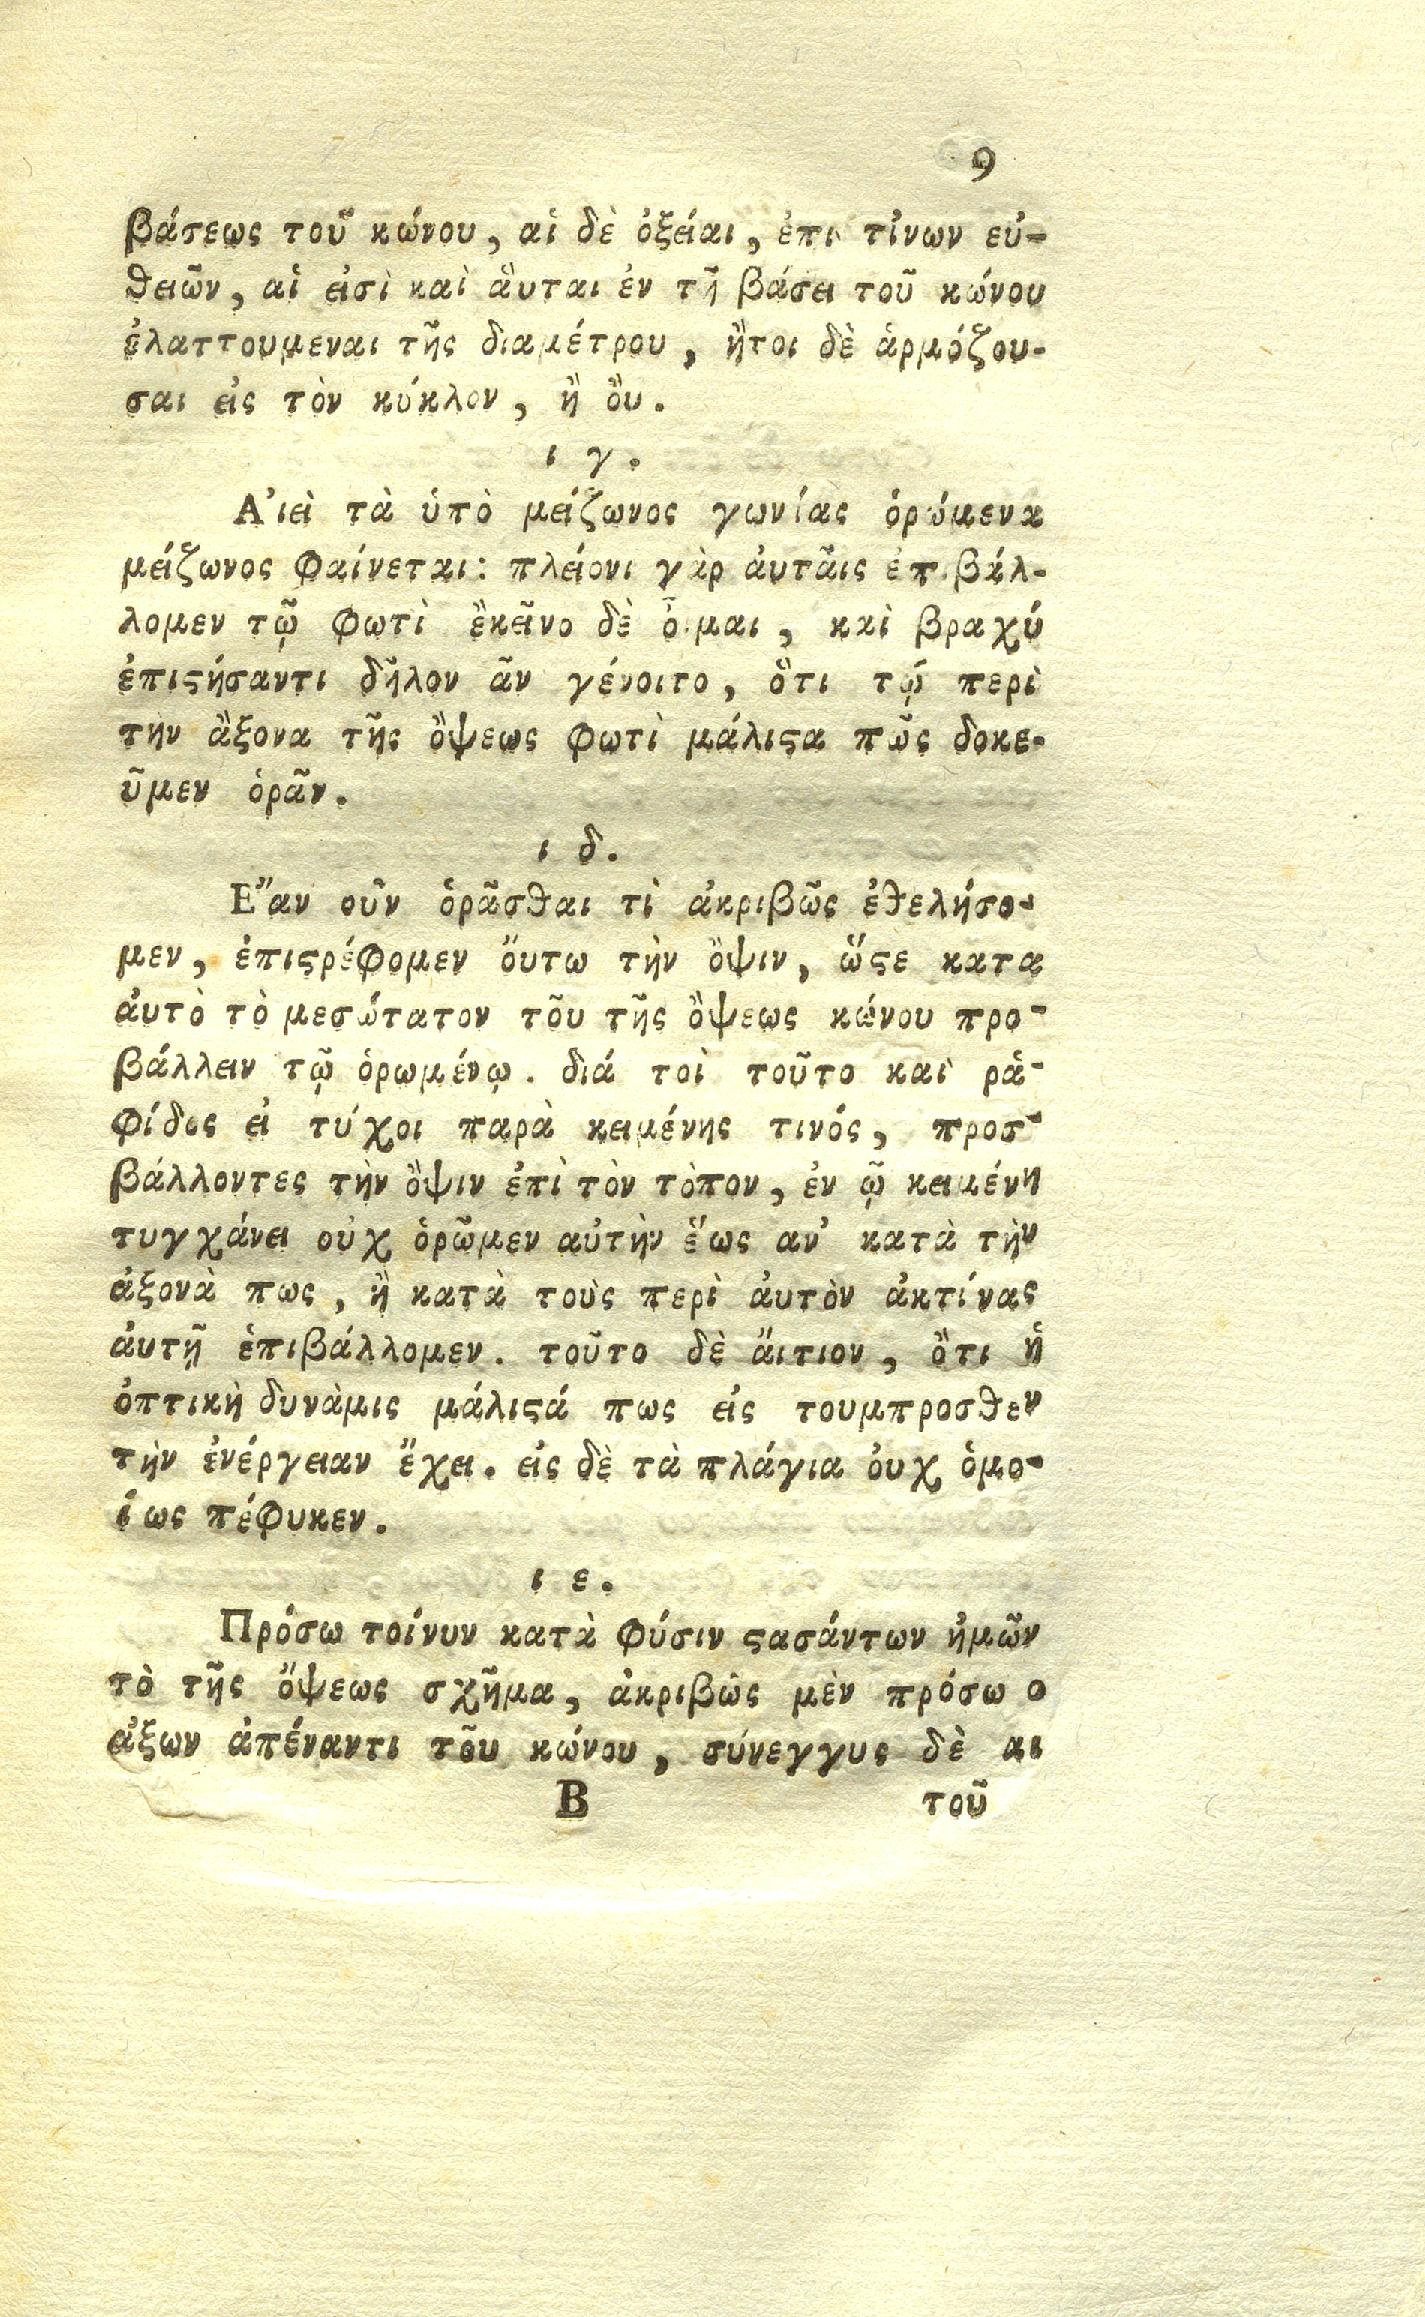 9
βάσεως τοῦ κώνου, αἱ δὲ ὀξείαι, ἐπι τἰνων εὐ-
θειῶν, αἱ εἰσὶ καὶ ἂυται ἐν τῆ βάσει τοῦ κώνου
ἐλαττουμεναι τῆς διαμέτρου, ἤτοι δὲ ἁρμόζου-
σαι εἰς τὸν κύκλον, ἢ ὂυ.
ι γ.
Α᾿ιεὶ τὰ ὑπὸ μείζωνος γωνίας ὁρώμενα
μείζωνος φαίνεται: πλείονι γὰρ ἀυτᾶις ἐπιβάλ-
λομεν τῷ φωτὶ ἒκεῖνο δὲ οἶμαι, καὶ βραχύ
ἐπιϛήσαντι δῆλον ἂν γένοιτο, ὃτι τῴ περὶ
τὴν ἂξονα τῆς ὂψεως φωτὶ μάλιϛα πῶς δοκε-
ῦμεν ὁρᾶν.
ι δ.
Ε῎αν οὖν ὁρᾶσθαι τὶ ἀκριβῶς ἐθελήσο-
μεν, ἐπιϛρέφομεν ὅυτω τὴν ὂψιν, ὥϛε κατα
ἀυτὸ τὸ μεσώτατον τοῦ τῆς ὂψεως κώνου προ-
βάλλειν τῷ ὁρωμένῳ. διά τοὶ τοῦτο καὶ ρἁ-
φίδος εἰ τύχοι παρὰ κειμένης τινός, προσ-
βάλλοντες τὴν ὂψιν ἐπὶ τὸν τὸπον, ἐν ᾧ κειμένη
τυγχάνει οὐχ ὁρῶμεν αὐτὴν ἕως αν᾿ κατὰ τὴν
ἀξονὰ πως, ἢ κατὰ τοὺς περὶ ἀυτὸν ἀκτίνας
ἀυτῇ ἐπιβάλλομεν. τοῦτο δὲ ἄιτιον, ὃτι ἡ
ὀπτικὴ δυνὰμις μάλιϛά πως εἰς τουμπροσθεν
τὴν ἐνέργειαν ἔχει. εἰς δὲ τὰ πλάγια ὀυχ ὁμο-
ίως πέφυκεν.
ι ε.
Πρόσω τοίνυν κατὰ φύσιν ϛασάντων ἡμῶν
τὸ τῆς ὄψεως σχῆμα, ἀκριβῶς μὲν πρόσω ο
ἀξων ἀπέναντι τοῦ κώνου, σύνεγγυς δὲ αι
Β τοῦ